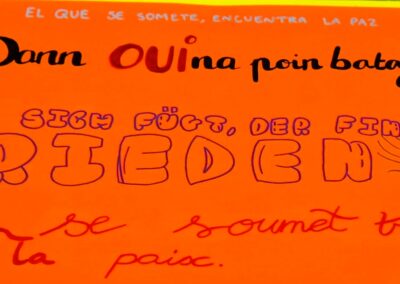 EL QUE SE SOMETE, ENCUENTRA LA PAZ
Dann OUI na poin bata
SICH FÜGT, DER FIN
RIEDEN
se soumet t
la paix.